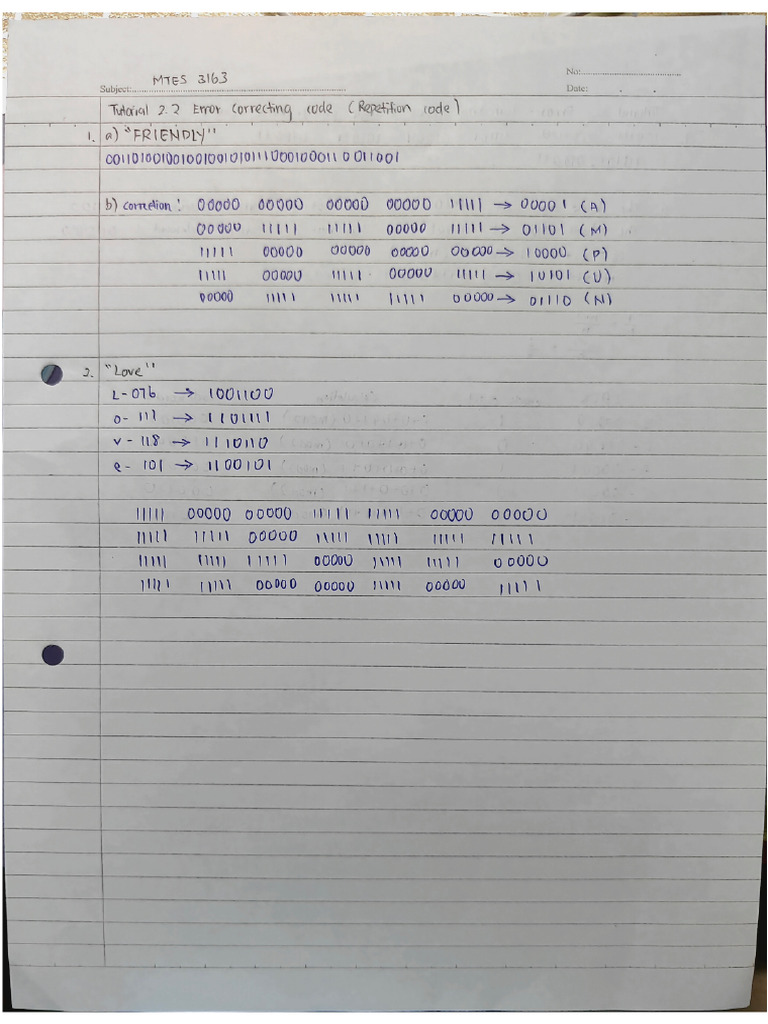 MTES 3163
No:
Subject:
Date:
Tutorial 2.2 Error correcting code (Repetition code)
1. a) "FRIENDLY"
0011010010010010010101110001000110 011001
b) correction: 00000 00000 00000 00000 11111 → 00001 (A)
00000 11111 11111 00000 11111 → 01101 (M)
11111 00000 00000 00000 00000 → 10000 (P)
11111 00000 11111 00000 11111 → 10101 (U)
00000 11111 11111 11111 00000 → 01110 (N)
2. "Love"
L - 076 → 1001100
o - 111 → 1101111
v - 118 → 1110110
e - 101 → 1100101
11111 00000 00000 11111 11111 00000 00000
11111 11111 00000 11111 11111 11111 11111
11111 11111 11111 00000 11111 11111 00000
11111 11111 00000 00000 11111 00000 11111